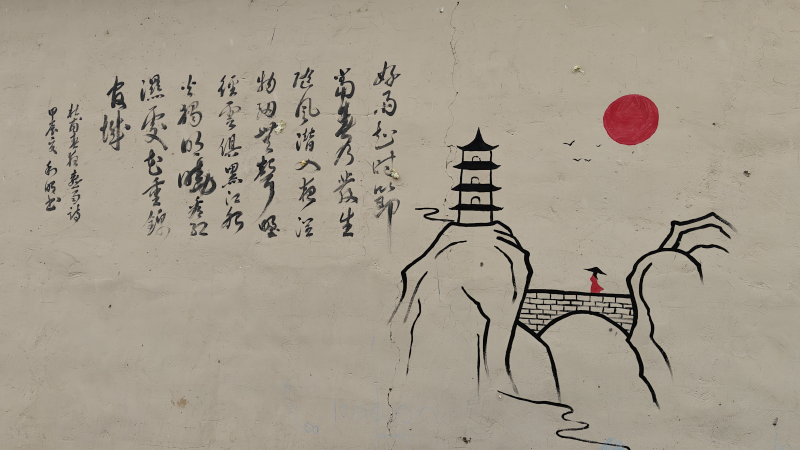 好雨知时节
当春乃发生
随风潜入夜润
物细无声野
径云俱黑江船
火独明晓看红
湿处花重锦
官城
杜甫春夜喜雨诗
甲辰